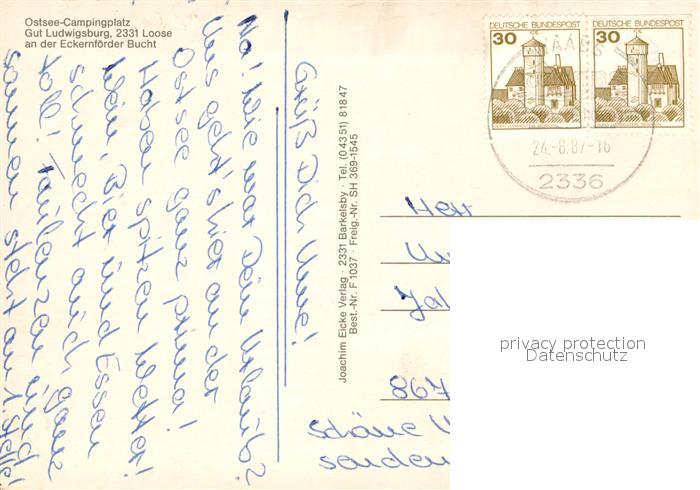 Ostsee-Campingplatz
Gut Ludwigsburg, 2331 Loose
an der Eckernförder Bucht
Grüß Dich
Na! Wie war Dein Urlaub?
Uns geht's hier an der
Ostsee ganz prima!
Haben spitzen Wetter!
Wein, Bier und Essen
schmeckt auch ganz
toll! Faulenzen und
sonnen steht an 1. Stelle!
Joachim Eicke Verlag · 2331 Barkelsby · Tel. (0 43 51) 818 47
Best.-Nr. F 1037 · Freig.-Nr. SH 369-1545
DEUTSCHE BUNDESPOST
30
DEUTSCHE BUNDESPOST
30
24.-8.87-16
2336
Herr
867
schöne
senden
privacy protection
Datenschutz